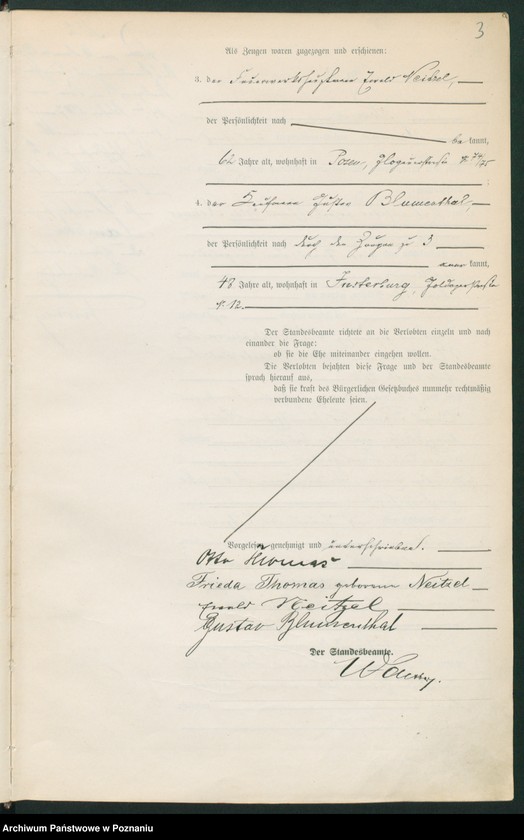 3
Als Zeugen waren zugezogen und erschienen:
3. der Ewald Neitzel,
der Persönlichkeit nach
be kannt,
62 Jahre alt, wohnhaft in Posen, Glogauerstraße № 74/75
;
4. der Kaufmann Gustav Blumenthal,
der Persönlichkeit nach durch den Zeugen zu 3
aner kannt,
48 Jahre alt, wohnhaft in Insterburg, Goldaperstraße
№ 12.
Der Standesbeamte richtete an die Verlobten einzeln und nach
einander die Frage:
ob sie die Ehe miteinander eingehen wollen.
Die Verlobten bejahten diese Frage und der Standesbeamte
sprach hierauf aus,
daß sie kraft des Bürgerlichen Gesetzbuches nunmehr rechtmäßig
verbundene Eheleute seien.
Vorgelesen, genehmigt und unterschrieben.
Otto Thomas
Frieda Thomas geborene Neitzel
Ewald Neitzel
Gustav Blumenthal
Der Standesbeamte.
Archiwum Państwowe w Poznaniu